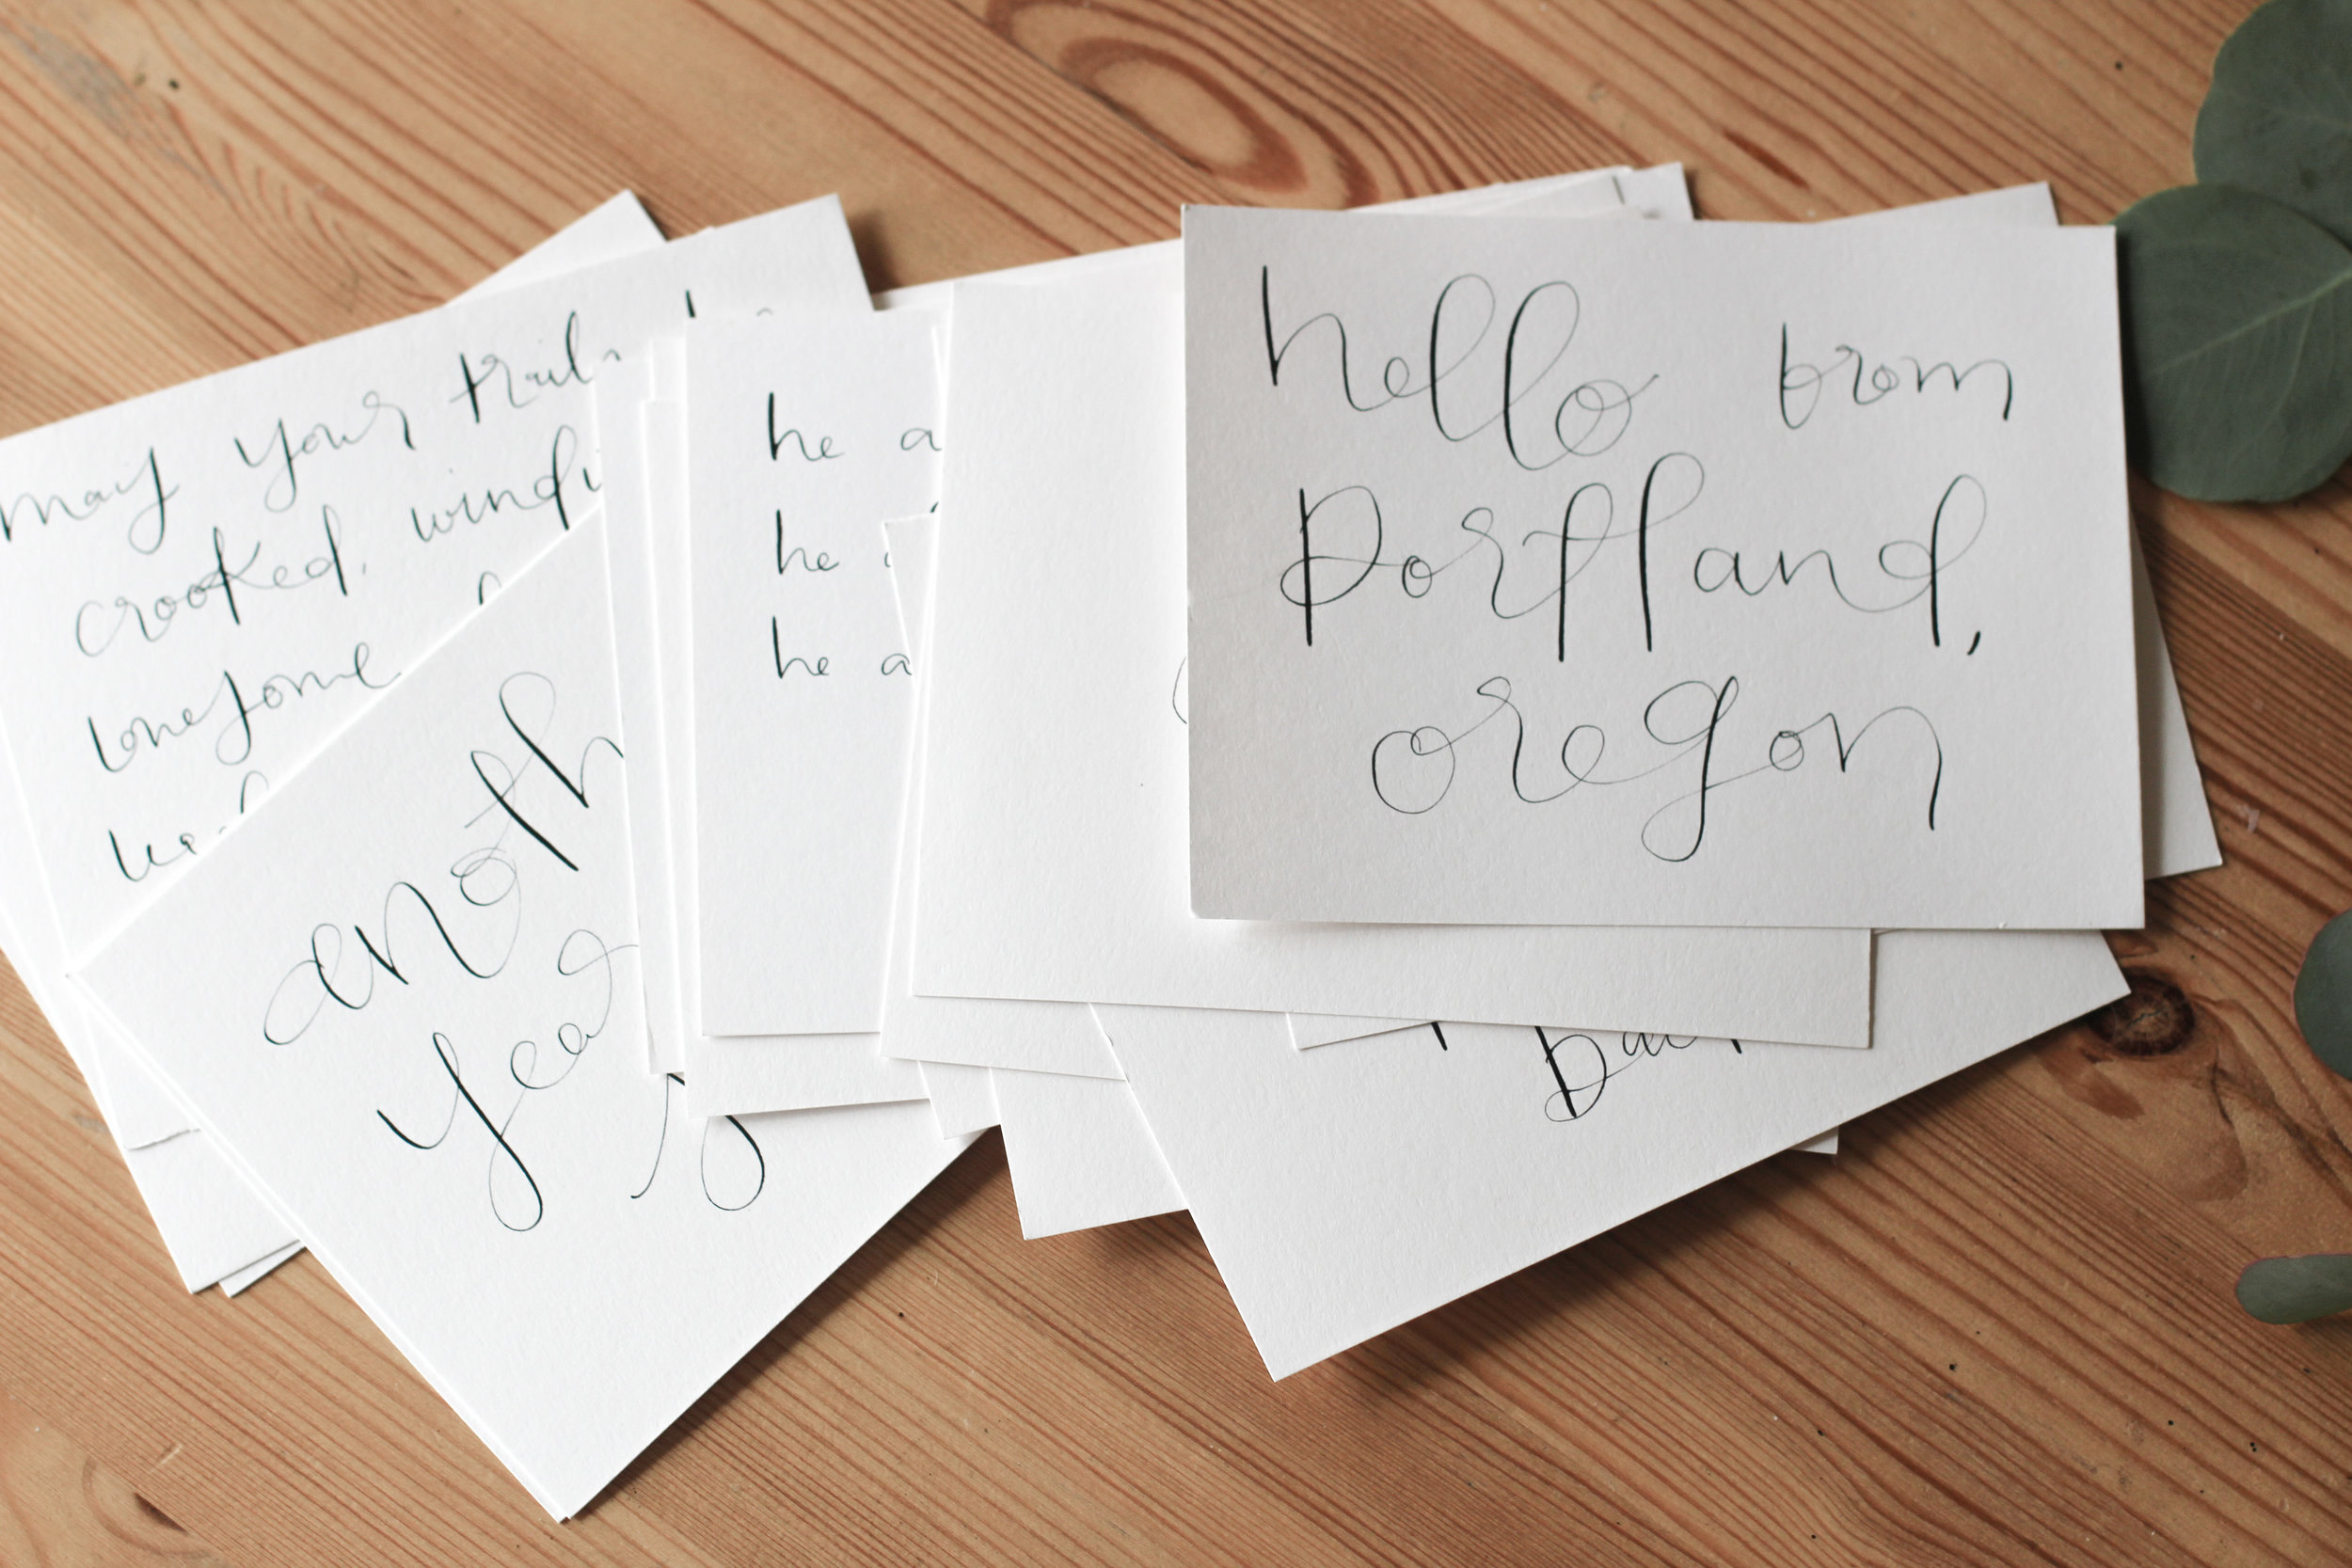 may your trails
crooked, windi
lonesome
anoth
yea
he a
he
he a
hello from
portland,
oregon